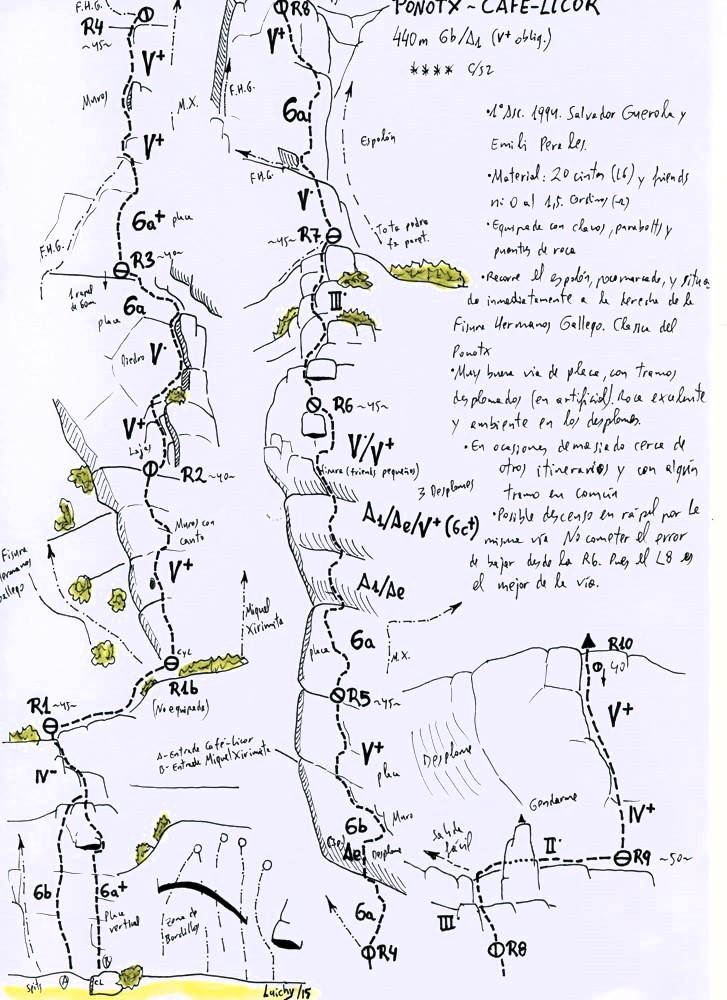 PONOTX ~ CAFÉ-LICOR
440m 6b/A1 (V+ oblig.)
**** C/S2
•1ª Asc. 1994. Salvador Guerola y
Emili Perales.
•Material: 20 cintas (L6) y friends
ni 0 al 1,5. Cordinos
•Equipada con clavos, parabolts y
puentes de roca
•Recorre el espolón, poco marcado, y situa-
do inmediatamente a la derecha de la
Fisura Hermanos Gallego. Clasica del
Ponotx
•Muy buena via de placa, con tramos
desplomados (en artificial). Roca excelente
y ambiente en los desplomes.
•En ocasiones demasiado cerca de
otros itinerarios y con algún
tramo en común
•Posible descenso en rápel por la
misma via. No cometer el error
de bajar desde la R6. Pues el L8 es
el mejor de la via.
F.H.G.
R4
~45~
V+
Muros
M.X.
V+
6a+ placa
F.H.G.
R3 ~40~
1 rapel
de 60m
placa
6a
Diedro
V·
V+
Lajas
R2 ~40~
Muros con
canto
V+
Fisura
Hermanos
Gallego
Miquel
Xirimita
R1b
(No equipada)
R1 ~45~
IV-
A-Entrada Café-Licor
B-Entrada Miquel Xirimita
6b
6a+
Placa
vertical
Zona de
Bordillos
Spits
A
B
CL
Luichy/15
R8
V+
F.H.G.
6a
Espolón
F.H.G.
V·
~45~
R7
Tota pedra
fa paret.
III·
R6 ~45~
V·/V+
fisura (friends pequeños)
3 Desplomes
A1/Ae/V+ (6c+)
A1/Ae
6a
placa
M.X.
R5 ~45~
V+
placa
Muro
6b
Ae
Desplome
6a
R4
R10
40
V+
Desplome
Gendarme
IV+
Salida
fácil
II·
R9 ~50~
III
R8